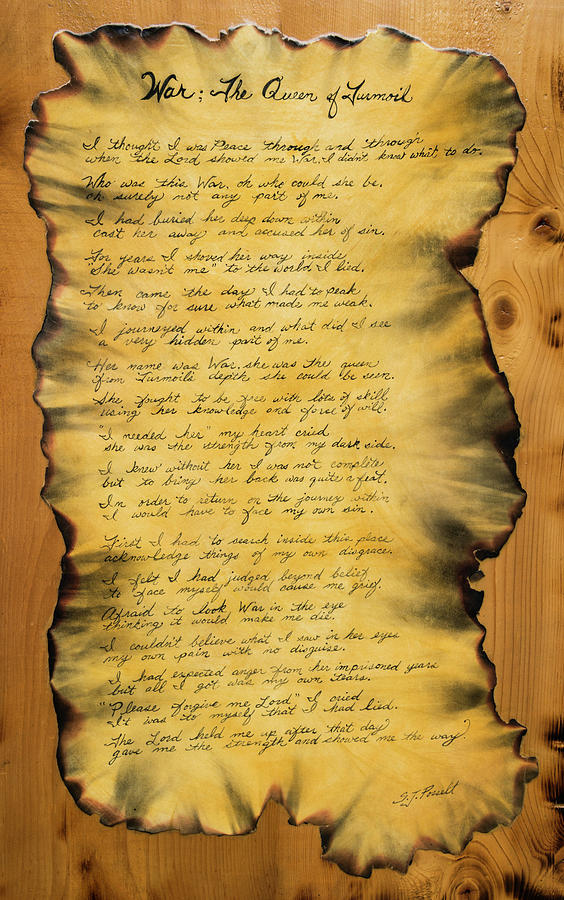 War; The Queen of Turmoil
I thought I was Peace through and through
when the Lord showed me War, I didn't know what to do.
Who was this War, oh who could she be,
oh surely not any part of me.
I had buried her deep down within
cast her away and accused her of sin.
For years I shoved her way inside
"She wasn't me" to the world I lied.
Then came the day I had to peak
to know for sure what made me weak.
I journeyed within and what did I see
a very hidden part of me.
Her name was War, she was the queen
from Turmoils depth she could be seen.
She fought to be free with lots of skill
using her knowledge and force of will.
"I needed her" my heart cried
she was the strength from my dark side.
I knew without her I was not complete
but to bring her back was quite a feat.
In order to return on the journey within
I would have to face my own sin.
First I had to search inside this place
acknowledge things of my own disgrace.
I felt I had judged beyond belief
to face myself would cause me grief.
Afraid to look War in the eye
thinking it would make me die.
I couldn't believe what I saw in her eyes
my own pain with no disguise.
I had expected anger from her imprisoned years
but all I got was my own tears.
"Please forgive me Lord" I cried
It was to myself that I had lied.
The Lord held me up after that day
gave me the strength and showed me the way.